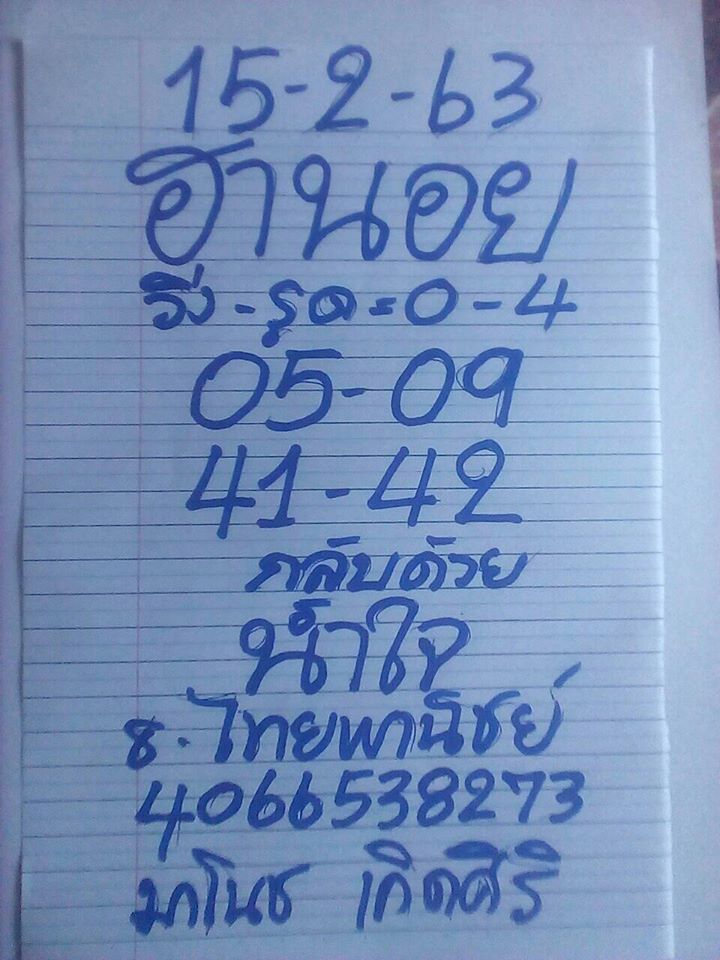 15-2-63
ฮานอย
วิ่ง-รูด=0-4
05-09
41-42
กลับด้วย
น้ำใจ
ธ.ไทยพานิชย์
4066538273
มาโนช เกิดศิริ